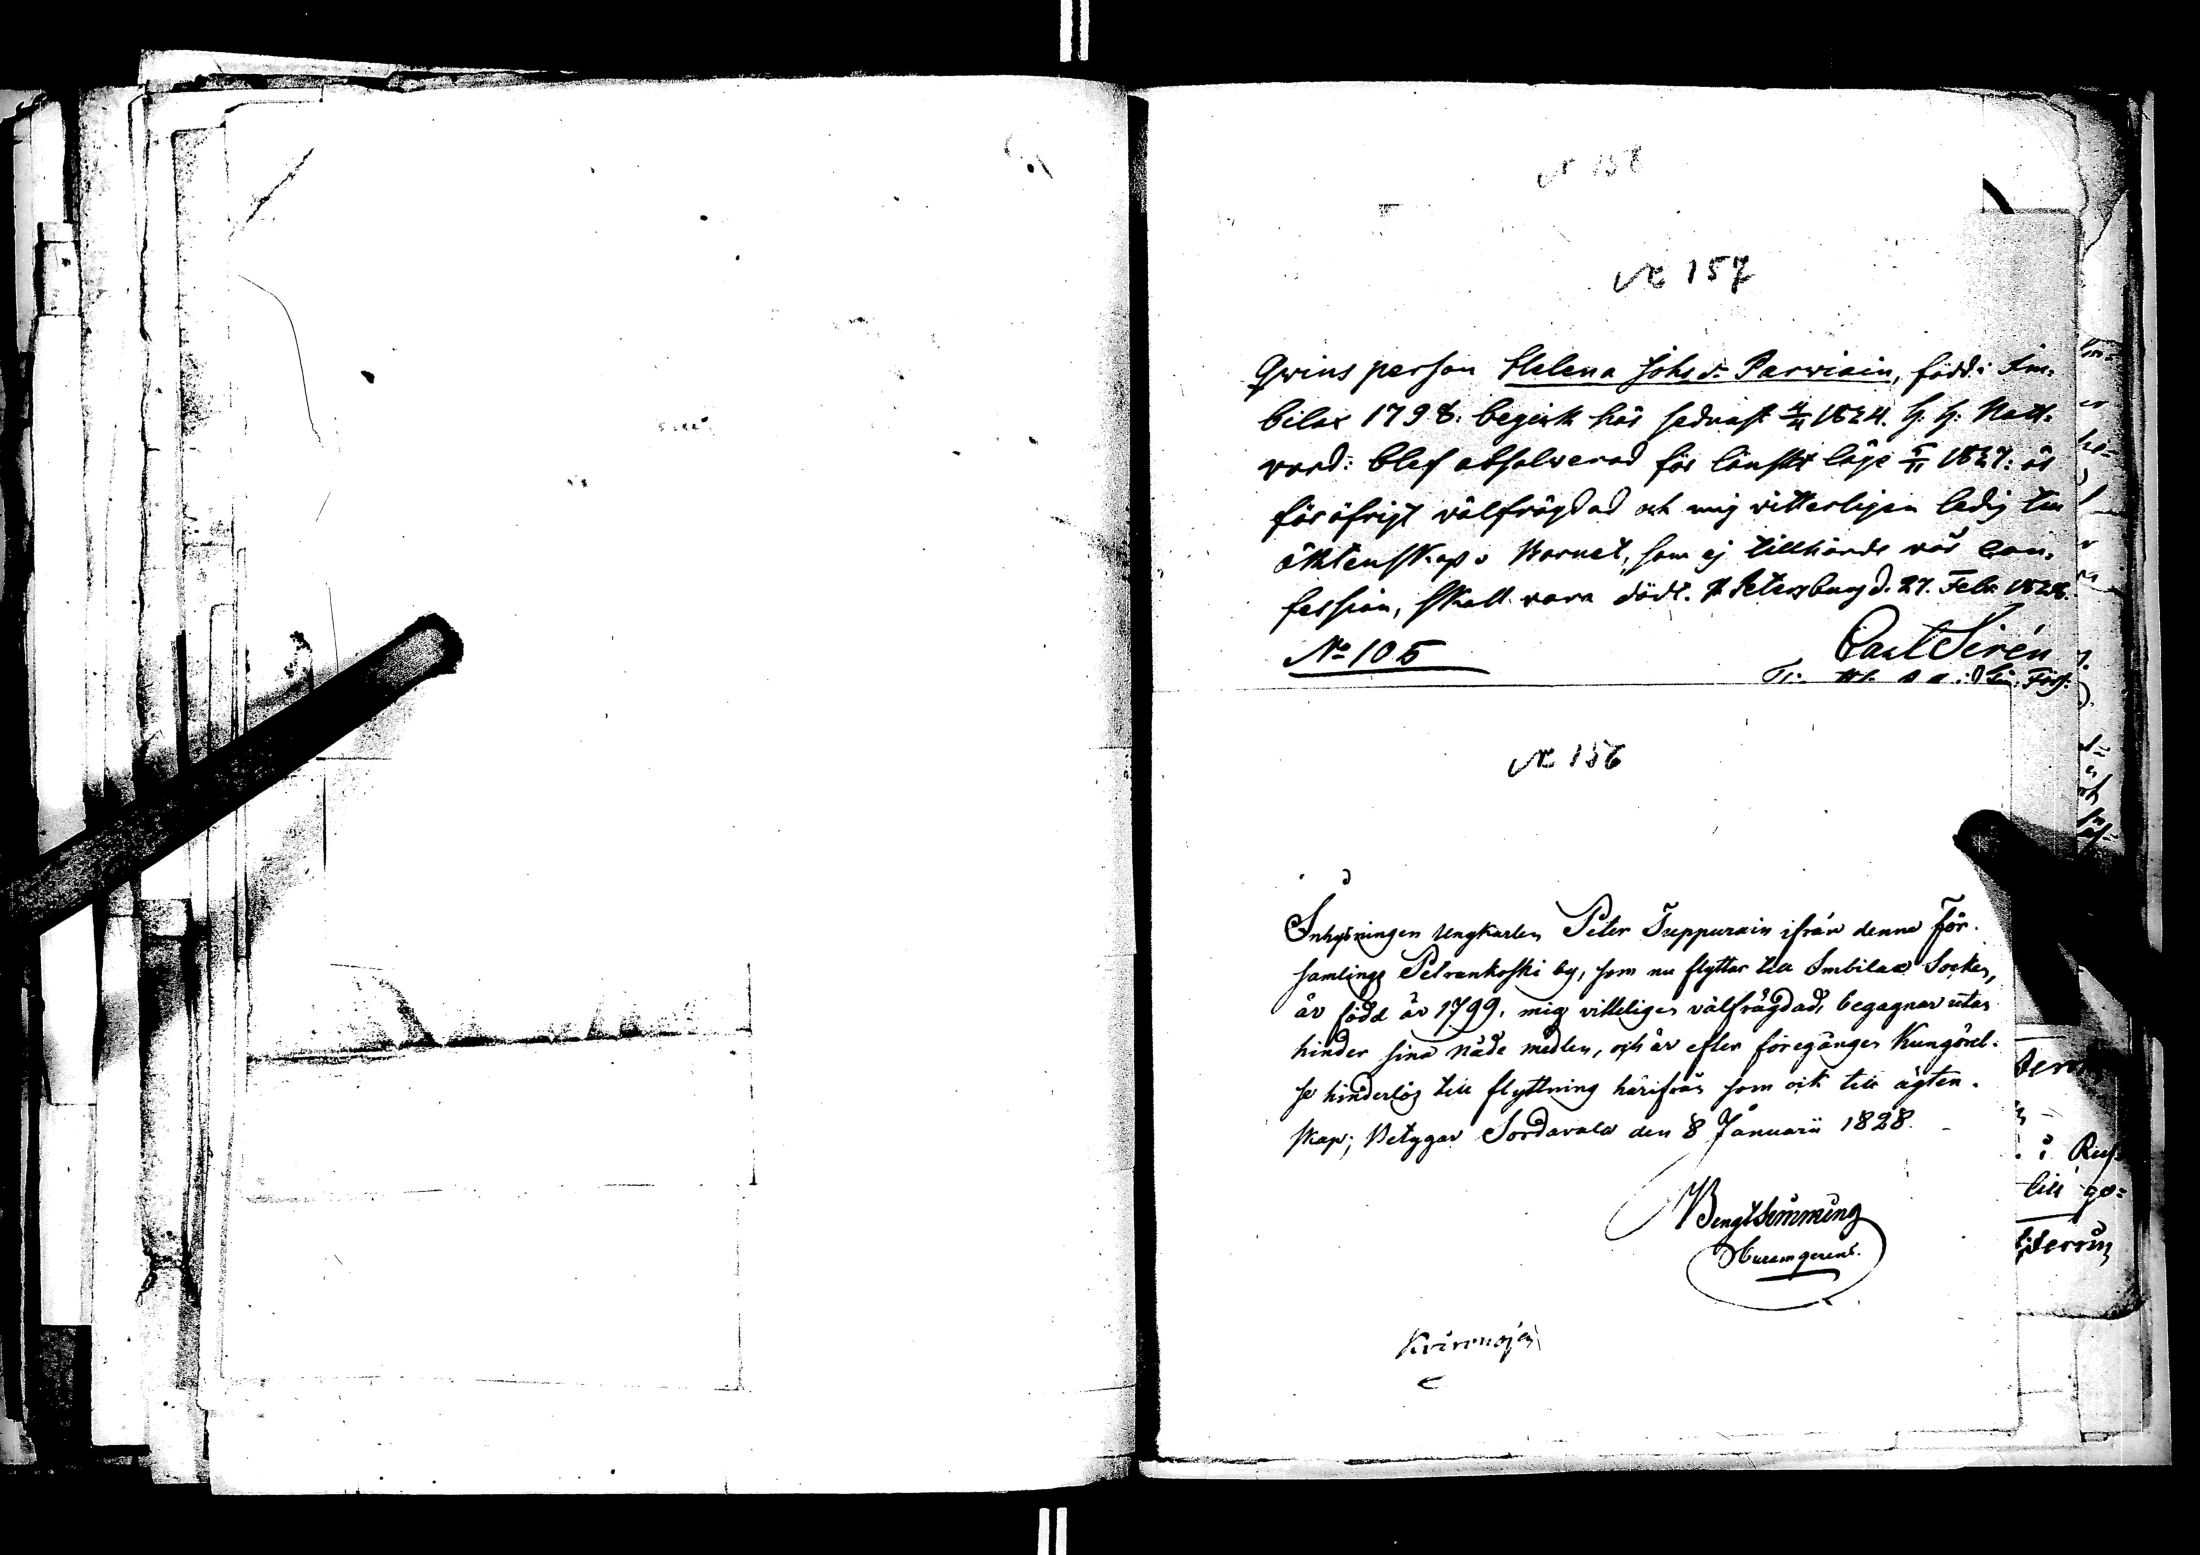 N 158
No 157
Qvinsperson Helena Johsdr Parviain, född i Im-
bilax 1798. begick här sednast 1824. H. H. Natt-
vard: blef absolverad för lönsktläge 1827: är
för öfrigt välfrägdad och mig vitterligen ledig till
äktenskap. Barnet, som ej tillhörde vår Con-
fession, skall vara dödt. St Petersburg d. 27. Febr. 1828.
No 105
Carl Sirén
No 156
Inhysningen Ungkarlen Peter Tuppurain ifrån denne För-
samlings Petrankoski by, som nu flyttar till Imbilax Socken,
är född år 1799, mig vitteligen välfrägdad, begagnar utan
hinder sina Nåde medlen, och är efter föregången Kungörel-
se hinderlös till flyttning härifrån som ock till ägten-
skap; Betygar Sordavala den 8 Januarii 1828.
Bengt Simming
Curam gerens.